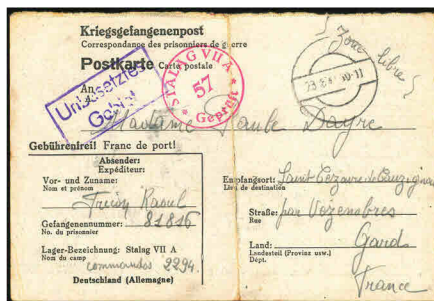 Kriegsgefangenenpost
Correspondance des prisonniers de guerre
Postkarte Carte postale
(Zone libre)
An
Unbesetztes Gebiet
STALAG VII A
57
Geprüft
Madame Paule Dayre
Gebührenfrei! Franc de port!
Absender:
Expéditeur:
Vor- und Zuname:
Nom et prénom
Raoul
Gefangenennummer: 81816
No. du prisonnier
Lager-Bezeichnung: Stalag VII A
Nom du camp
commandos 2294.
Deutschland (Allemagne)
Empfangsort: Saint Cézaire de Gauzignan
Lieu de destination
Straße: par Vézenobres
Rue
Land: Gard
Landesteil (Provinz usw.)
Dépt.
France